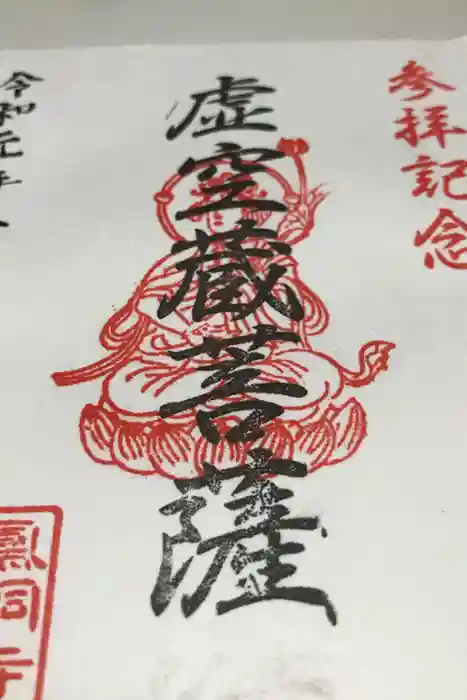 参拝記念
虚空蔵菩薩
令和元年
鳳同寺